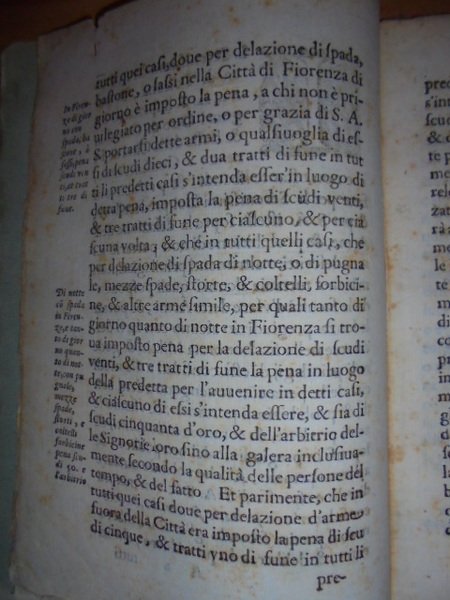 tutti quei casi, doue per delazione di spada,
bastone, o sassi nella Città di Fiorenza di
giorno è imposto la pena, a chi non è pri-
uilegiato per ordine, o per grazia di S. A.
& portar si dette armi, o qualsiuoglia di es-
si di scudi dieci, & dua tratti di fune in tut
ti li predetti casi s'intenda esser'in luogo di
detta pena, imposta la pena di scudi venti,
& tre tratti di fune per ciascuno, & per cia
scuna volta; & che in tutti quelli casi, che
per delazione di spada di notte, o di pugna
le, mezze spade, storte, & coltelli, forbici-
ne, & altre arme simile, per quali tanto di
giorno quanto di notte in Fiorenza si tro-
ua imposto pena per la delazione di scudi
venti, & tre tratti di fune la pena in luogo
della predetta per l'auuenire in detti casi,
& ciascuno di essi s'intenda essere, & sia di
scudi cinquanta d'oro, & dell'arbitrio del-
le Signorie loro sino alla galera inclusiua-
mente secondo la qualità delle persone del
tempo, & del fatto. Et parimente, che in
tutti quei casi doue per delazione d'arme
fuora della Città era imposto la pena di scu
di cinque, & tratti vno di fune in tutti li
pre-
In Fioren-
ze di gior
no con
spada, ba
stone, è
sassi, pena
scudi ven
ti, et tre di
fune.
Di notte
cō spada
in Fioren
ze, e tan-
to di gior
no quan-
to di not-
te, con pu
gnale,
mezze
spade,
storte, e
coltelli
forbicine
pena scu-
di 50. e
l'arbitrio
pred
s'int